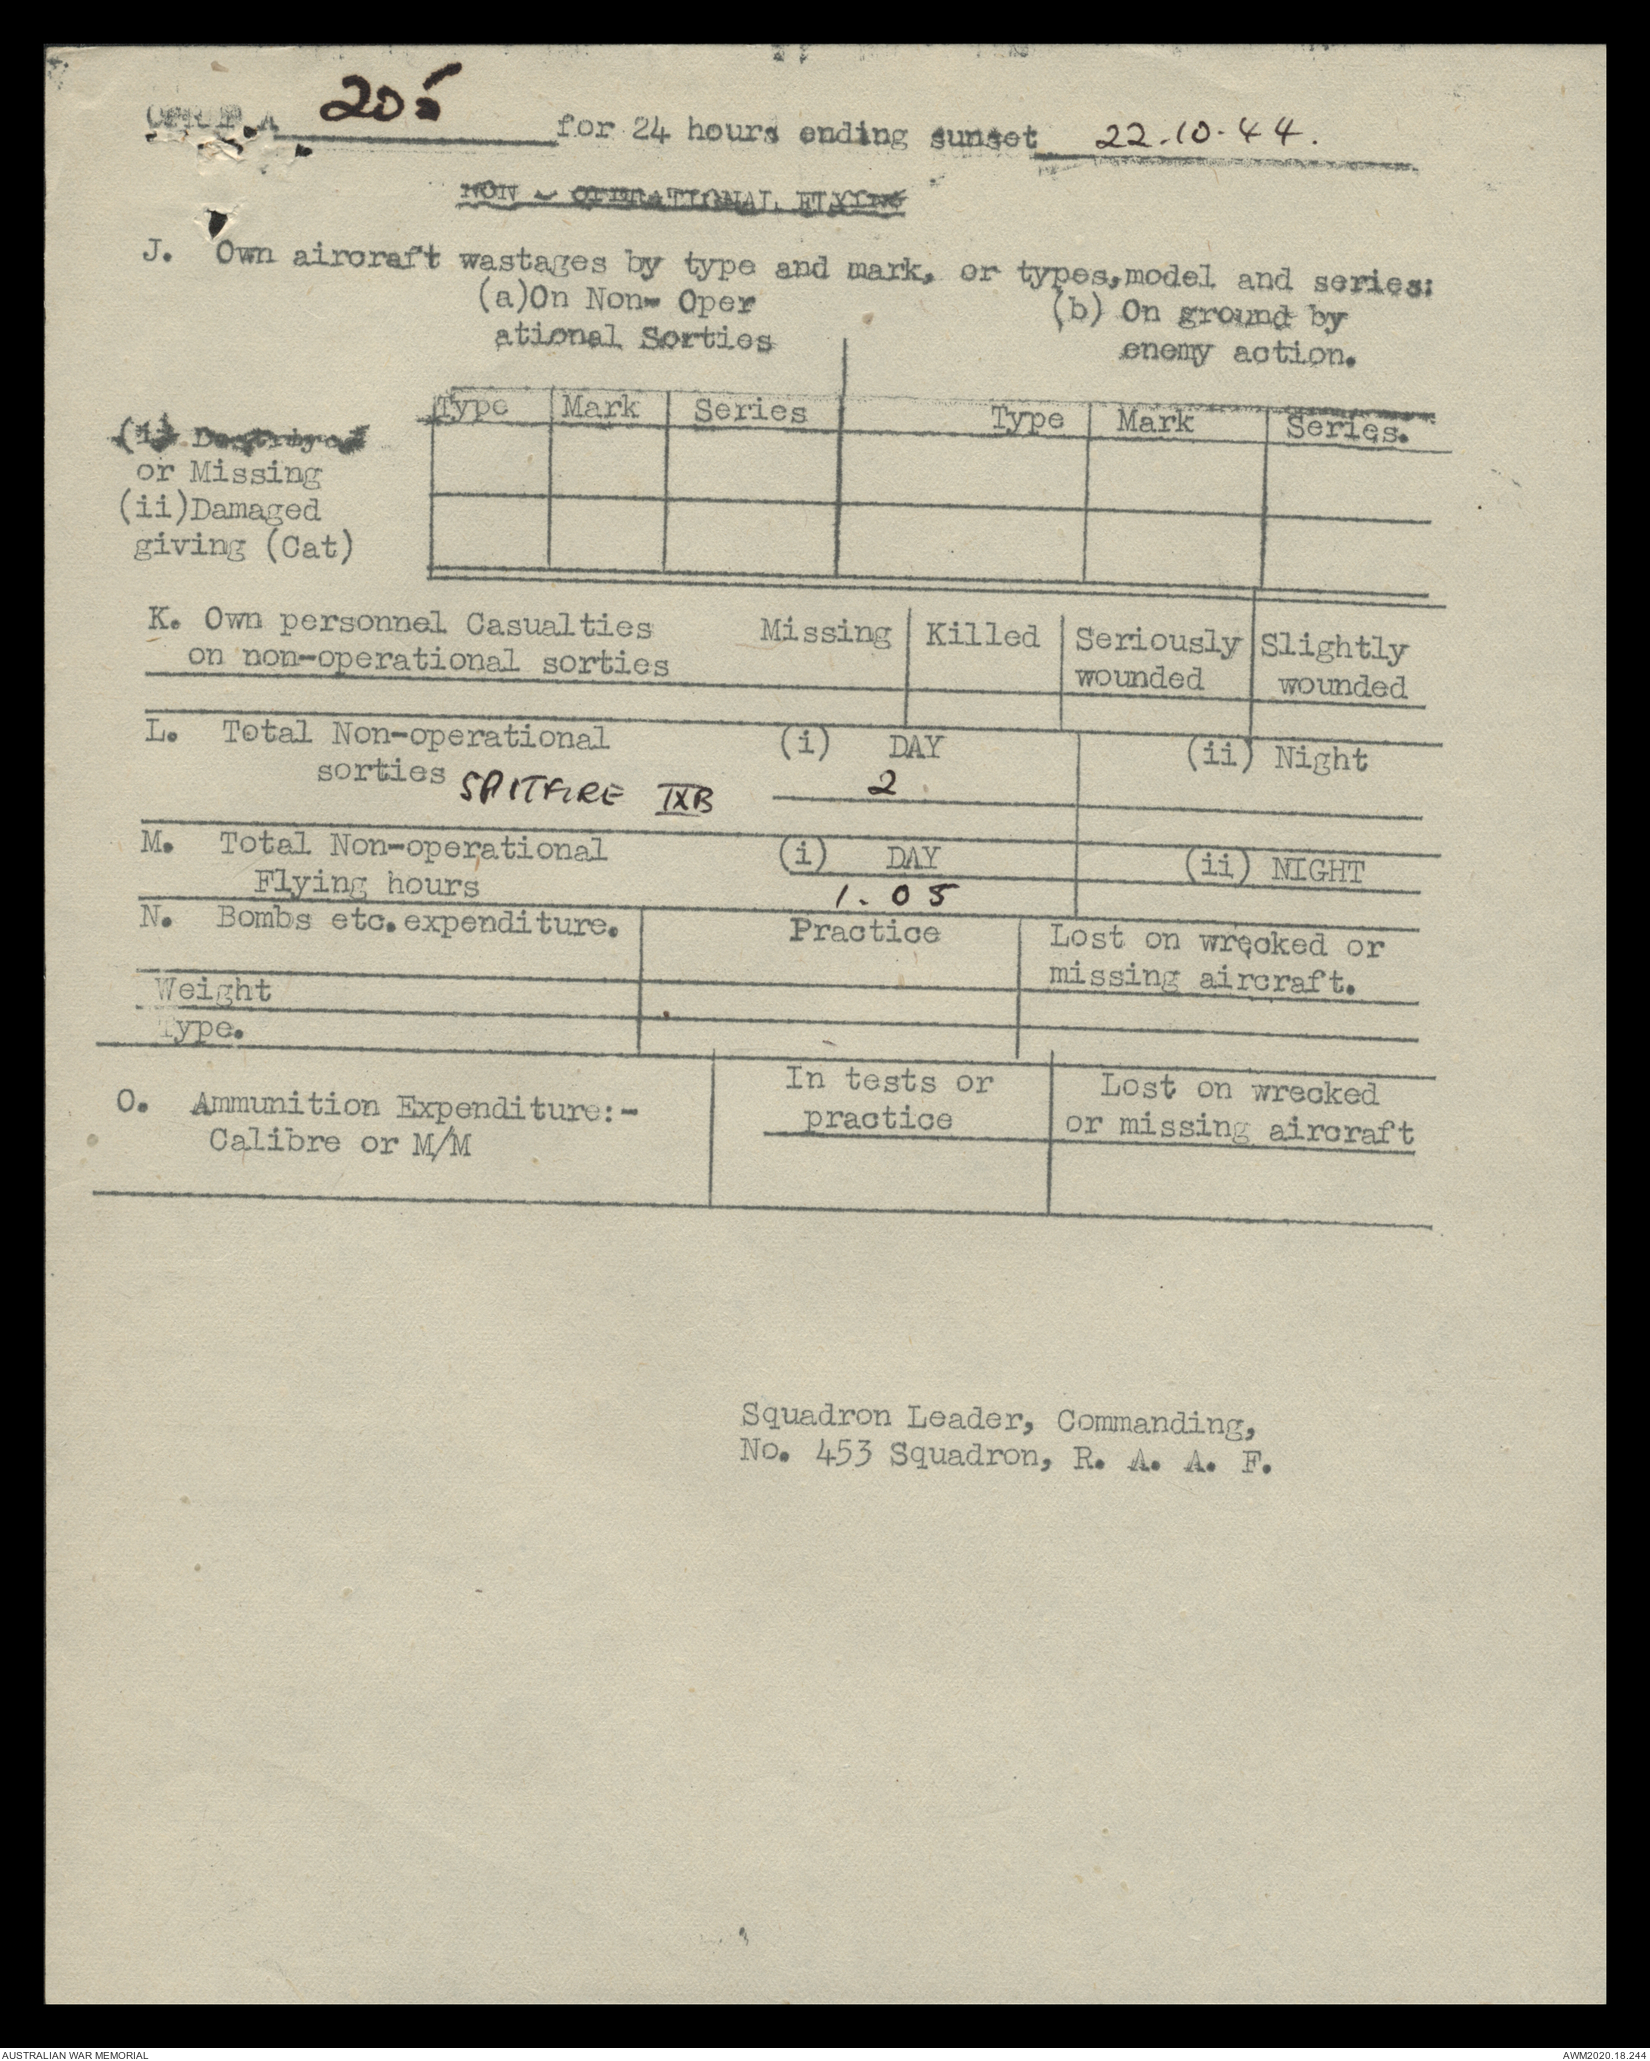 OPREP A 205 for 24 hours ending sunset 22.10.44.
NON - OPERATIONAL FLYING
J. Own aircraft wastages by type and mark, or types,model and series:
(a)On Non- Oper (b) On ground by
ational Sorties enemy action.
Type Mark Series Type Mark Series.
(i) Destroyed
or Missing
(ii)Damaged
giving (Cat)
K. Own personnel Casualties Missing Killed Seriously Slightly
on non-operational sorties wounded wounded
L. Total Non-operational (i) DAY (ii) Night
sorties SPITFIRE IXB 2
M. Total Non-operational (i) DAY (ii) NIGHT
Flying hours 1.05
N. Bombs etc.expenditure. Practice Lost on wrecked or
missing aircraft.
Weight
Type.
In tests or Lost on wrecked
O. Ammunition Expenditure:- practice or missing aircraft
Calibre or M/M
Squadron Leader, Commanding,
No. 453 Squadron, R. A. A. F.
AUSTRALIAN WAR MEMORIAL AWM2020.18.244